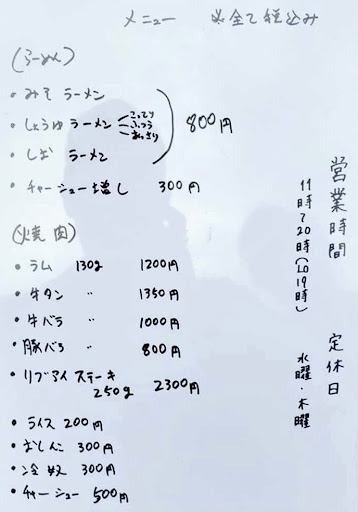 メニュー ※全て税込み
(らーめん)
・みそ ラーメン
・しょうゆ ラーメン こってり ふつう あっさり
・しお ラーメン
800円
・チャーシュー増し 300円
(焼肉)
・ラム 130g 1200円
・牛タン 〃 1350円
・牛バラ 〃 1000円
・豚バラ 〃 800円
・リブアイステーキ
250g 2300円
・ライス 200円
・おしんこ 300円
・冷奴 300円
・チャーシュー 500円
営業時間
11時~20時(LO19時)
定休日
水曜・木曜